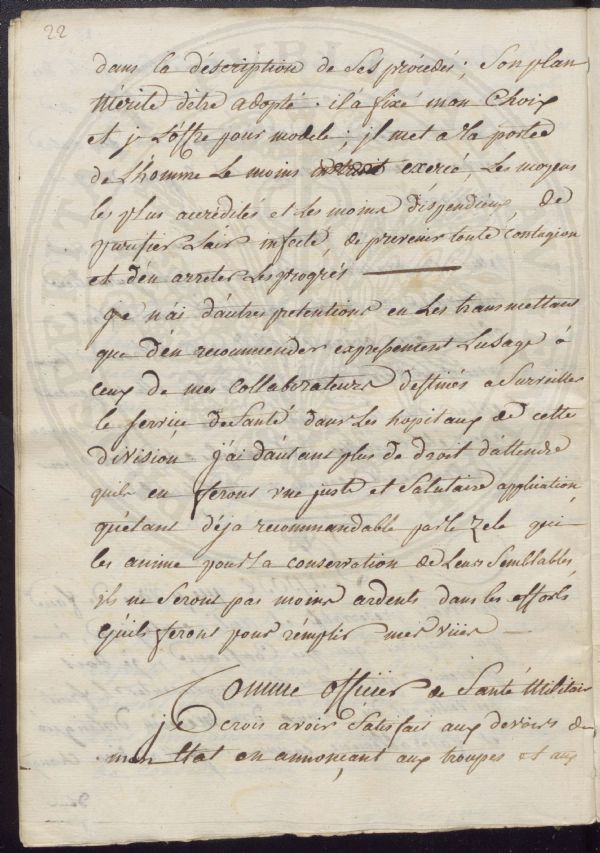 22
dans la déscription de Ses procédés; Son plan
Mérite detre adopté. il a fixé mon Choix
et je L'offre pour modele; jl met a la portée
de L'homme Le moins exercé, Les moyens
les plus accredités et Les moins dispendieux, de
purifier L'air infecté, de prevenir toute Contagion
et d'én arreter Les progrés
Je n'ai d'autres pretentions en Les transmettant
que d'én recommender expressement Lusage à
ceux de mes Collaborateurs destinés a Surveiller
le Service de Santé dans Les hopitaux de cette
division, j'ai d'autant plus de droit d'áttendre
quils en feront vne juste et Salutaire application,
qu'étant déja recommandable par le zele qui
les anime pour la conservation de Leurs Semblables,
ils ne Seront pas moins ardents dans les efforts
qu'ils feront pour rémplir mes vües
Comme officier de Santé Militaire
je Crois avoir Satisfait aux devoirs de
mon Etat en annonçant aux troupes et aux